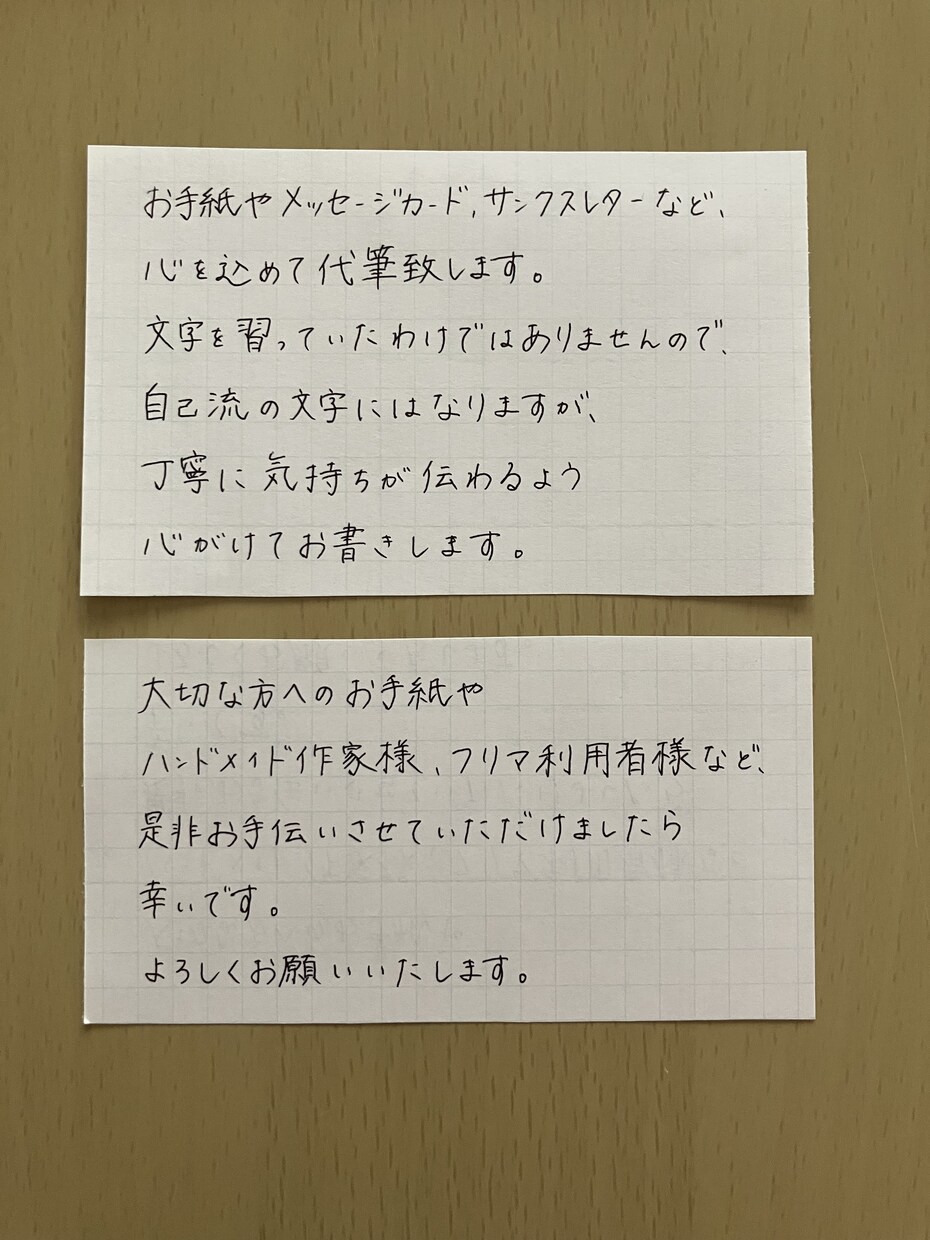 お手紙やメッセージカード、サンクスレターなど、
心を込めて代筆致します。
文字を習っていたわけではありませんので、
自己流の文字にはなりますが、
丁寧に気持ちが伝わるよう
心がけてお書きします。
大切な方へのお手紙や
ハンドメイド作家様、フリマ利用者様など、
是非お手伝いさせていただけましたら
幸いです。
よろしくお願いいたします。